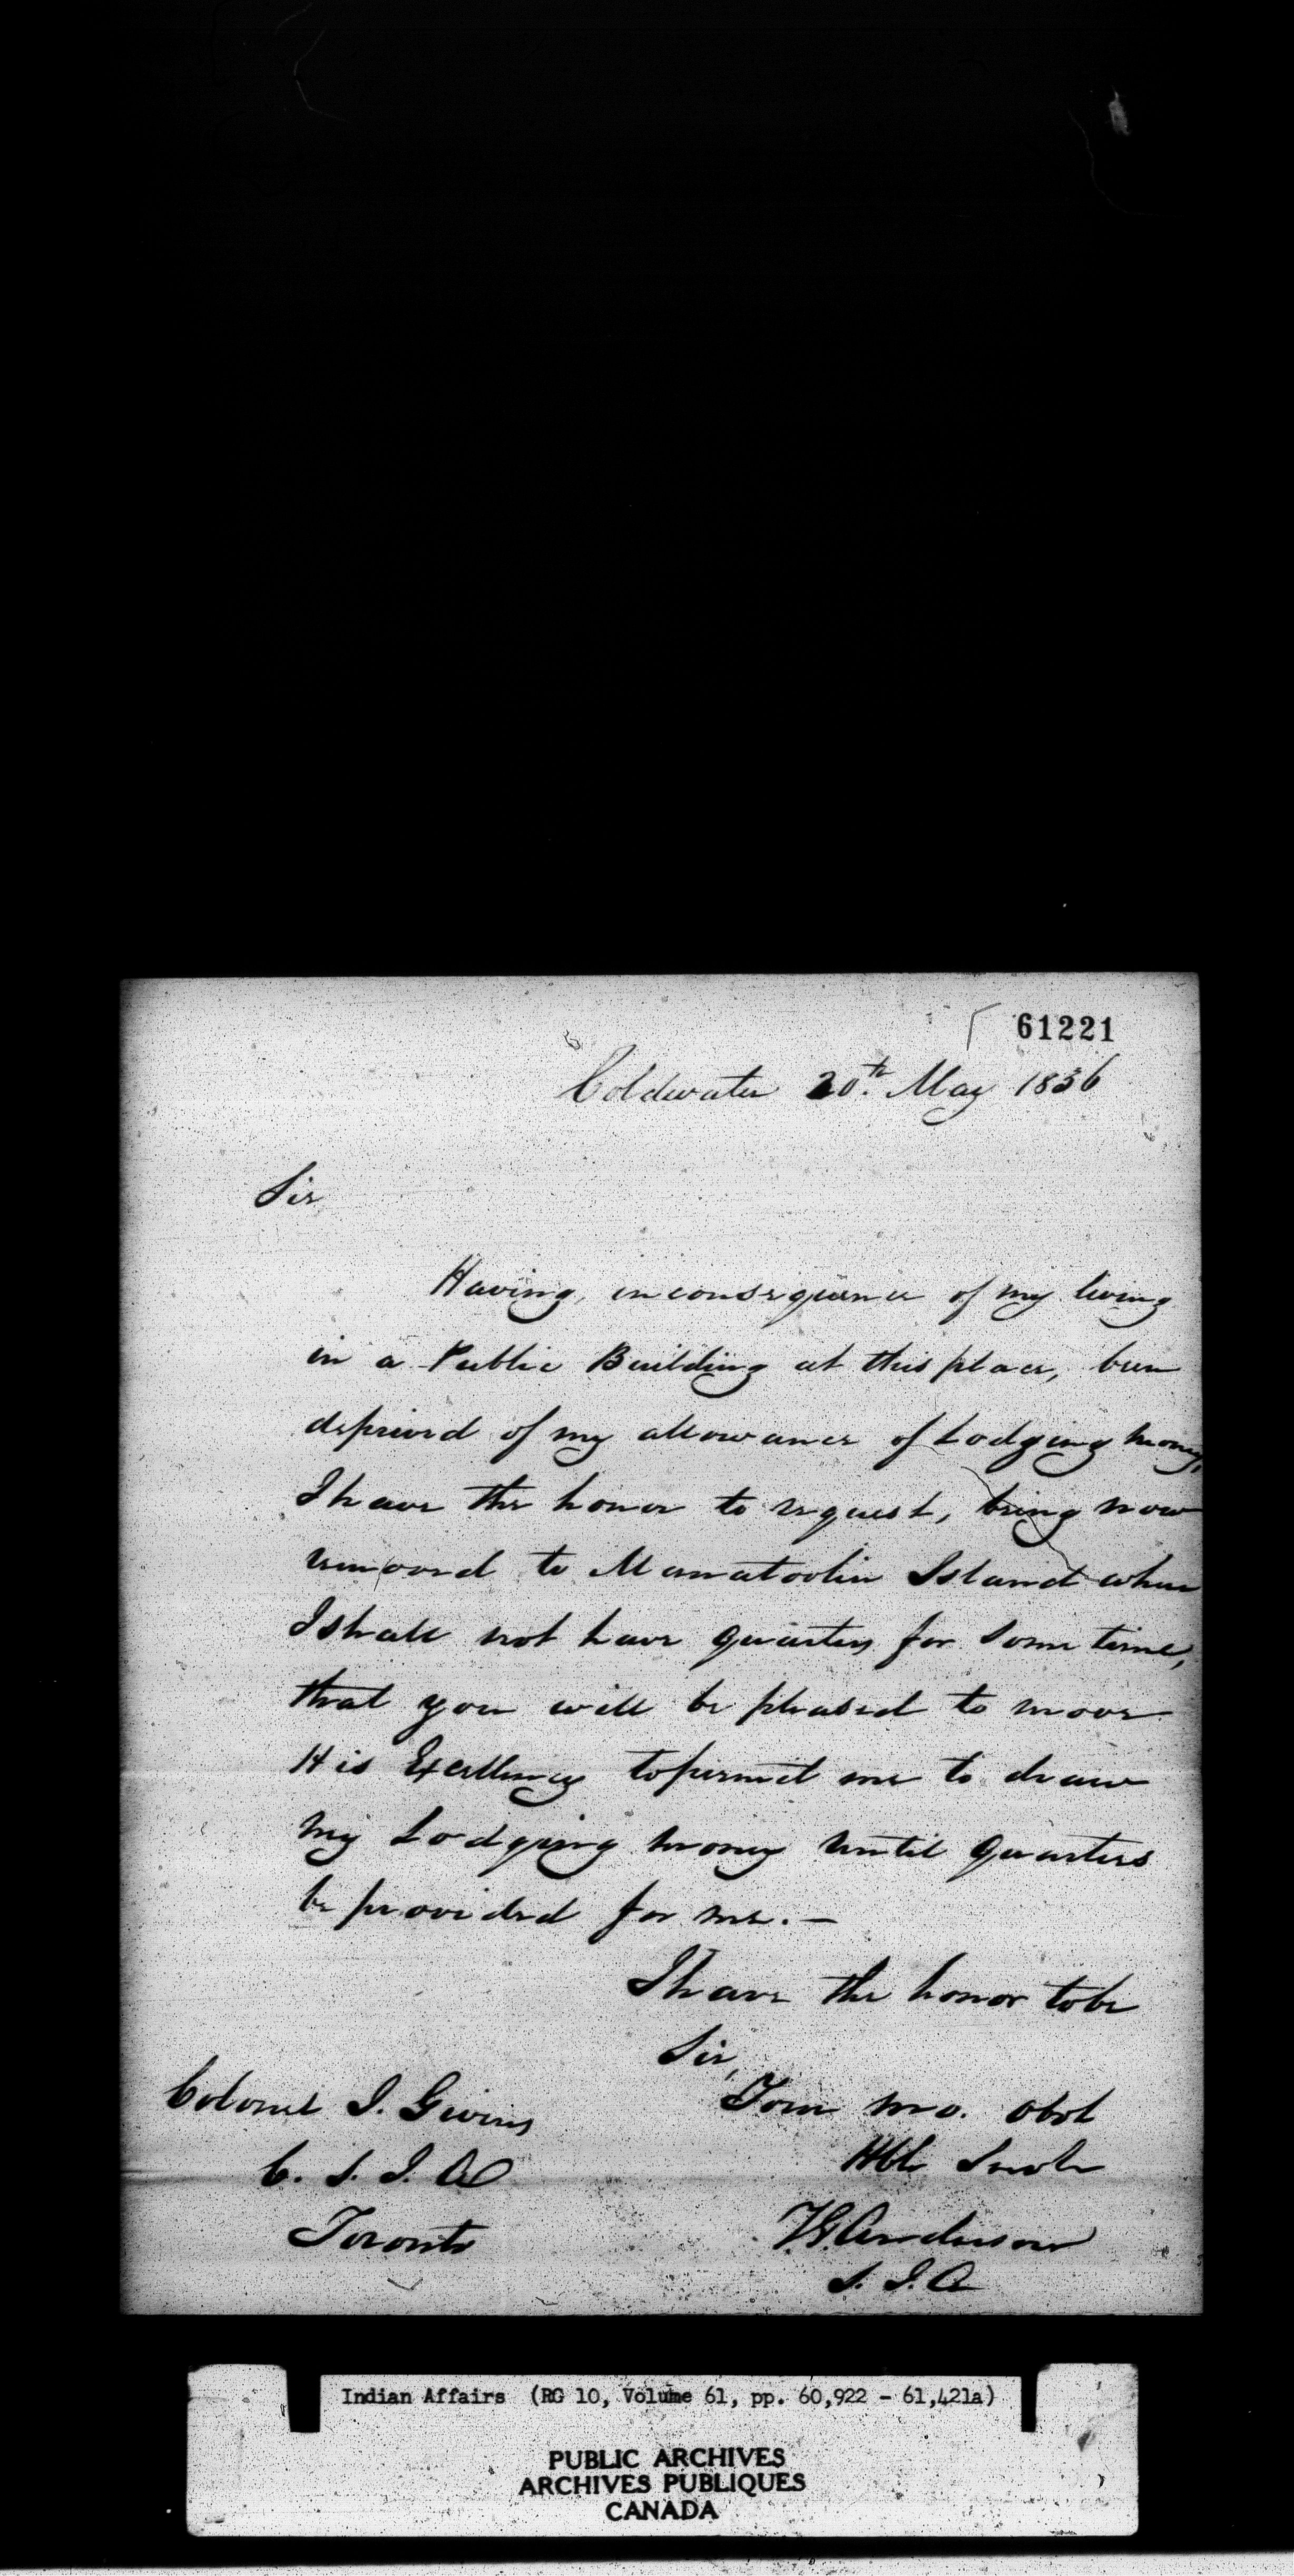 61221
Coldwater 20th. May 1836
Sir
Having, in consequence of my living
in a Public Building at this place, been
deprived of my allowance of Lodging money,
I have the honor to request, being now
removed to Manatoolin Island where
I shall not have quarters for some time,
that you will be pleased to move
His Excellency to permit me to draw
my Lodging money until quarters
be provided for me. —
I have the honor to be
Sir,
Your mo. obdt
Hble Servt
T.G. Anderson
S. I. A
Colonel J. Givins
C. S. I. A
Toronto
Indian Affairs (RG 10, Volume 61, pp. 60,922 - 61,421a)
PUBLIC ARCHIVES
ARCHIVES PUBLIQUES
CANADA